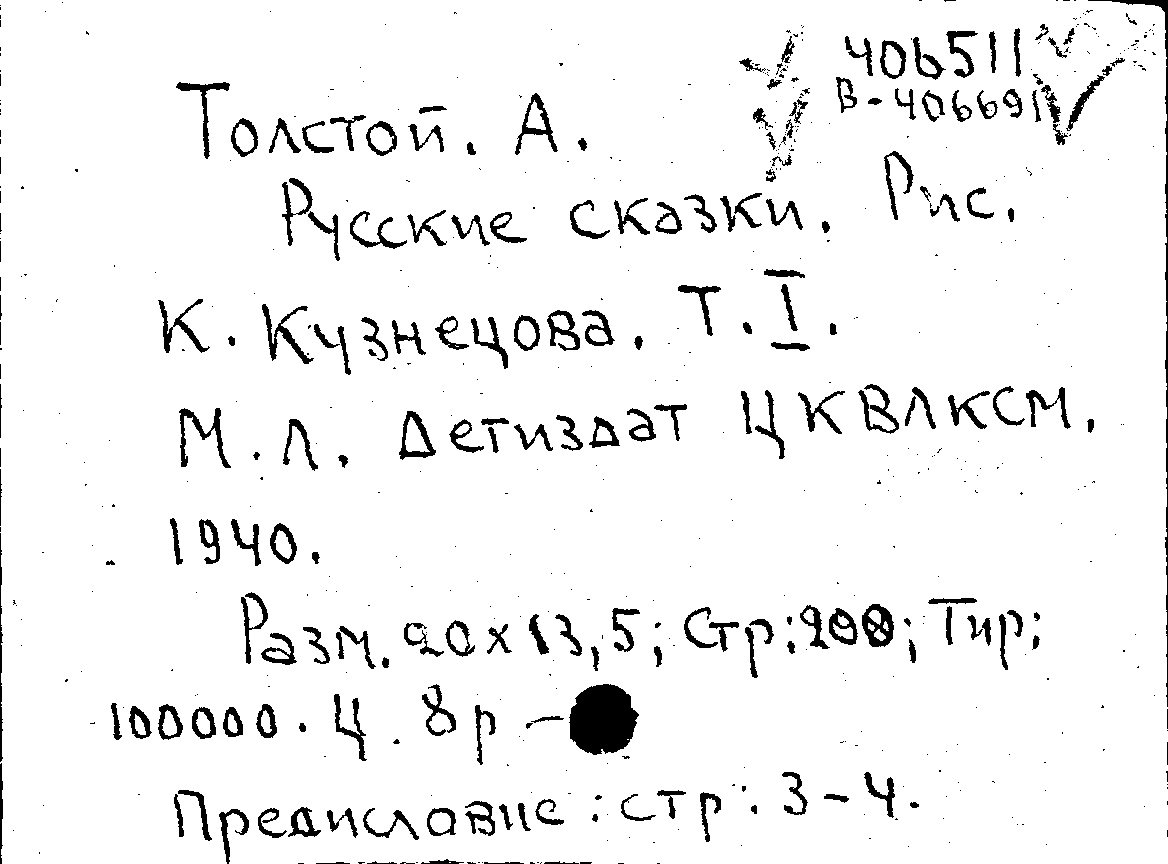 406511
В-406691
Толстой. А.
Русские сказки. Рис.
К. Кузнецова. Т. I.
М. Л. Детиздат ЦКВЛКСМ.
1940.
Разм. 20х13,5; Стр: 200; Тир;
100000. Ц. 8р –
Предисловие: стр: 3-4.